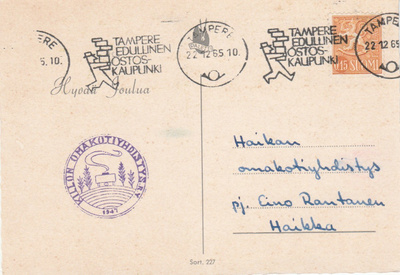 TAMPERE
5.10.
TAMPERE
EDULLINEN
OSTOS-
KAUPUNKI
TAMPERE
22.12.65 10.
TAMPERE
EDULLINEN
OSTOS-
KAUPUNKI
TAMPERE
22.12.65
0.15 SUOMI
Hyvää Joulua
OMAKOTIYHDISTYS R.Y.
1947
Haikan
omakotiyhdistys
pj. Eino Rantanen
Haikka
Sort. 227